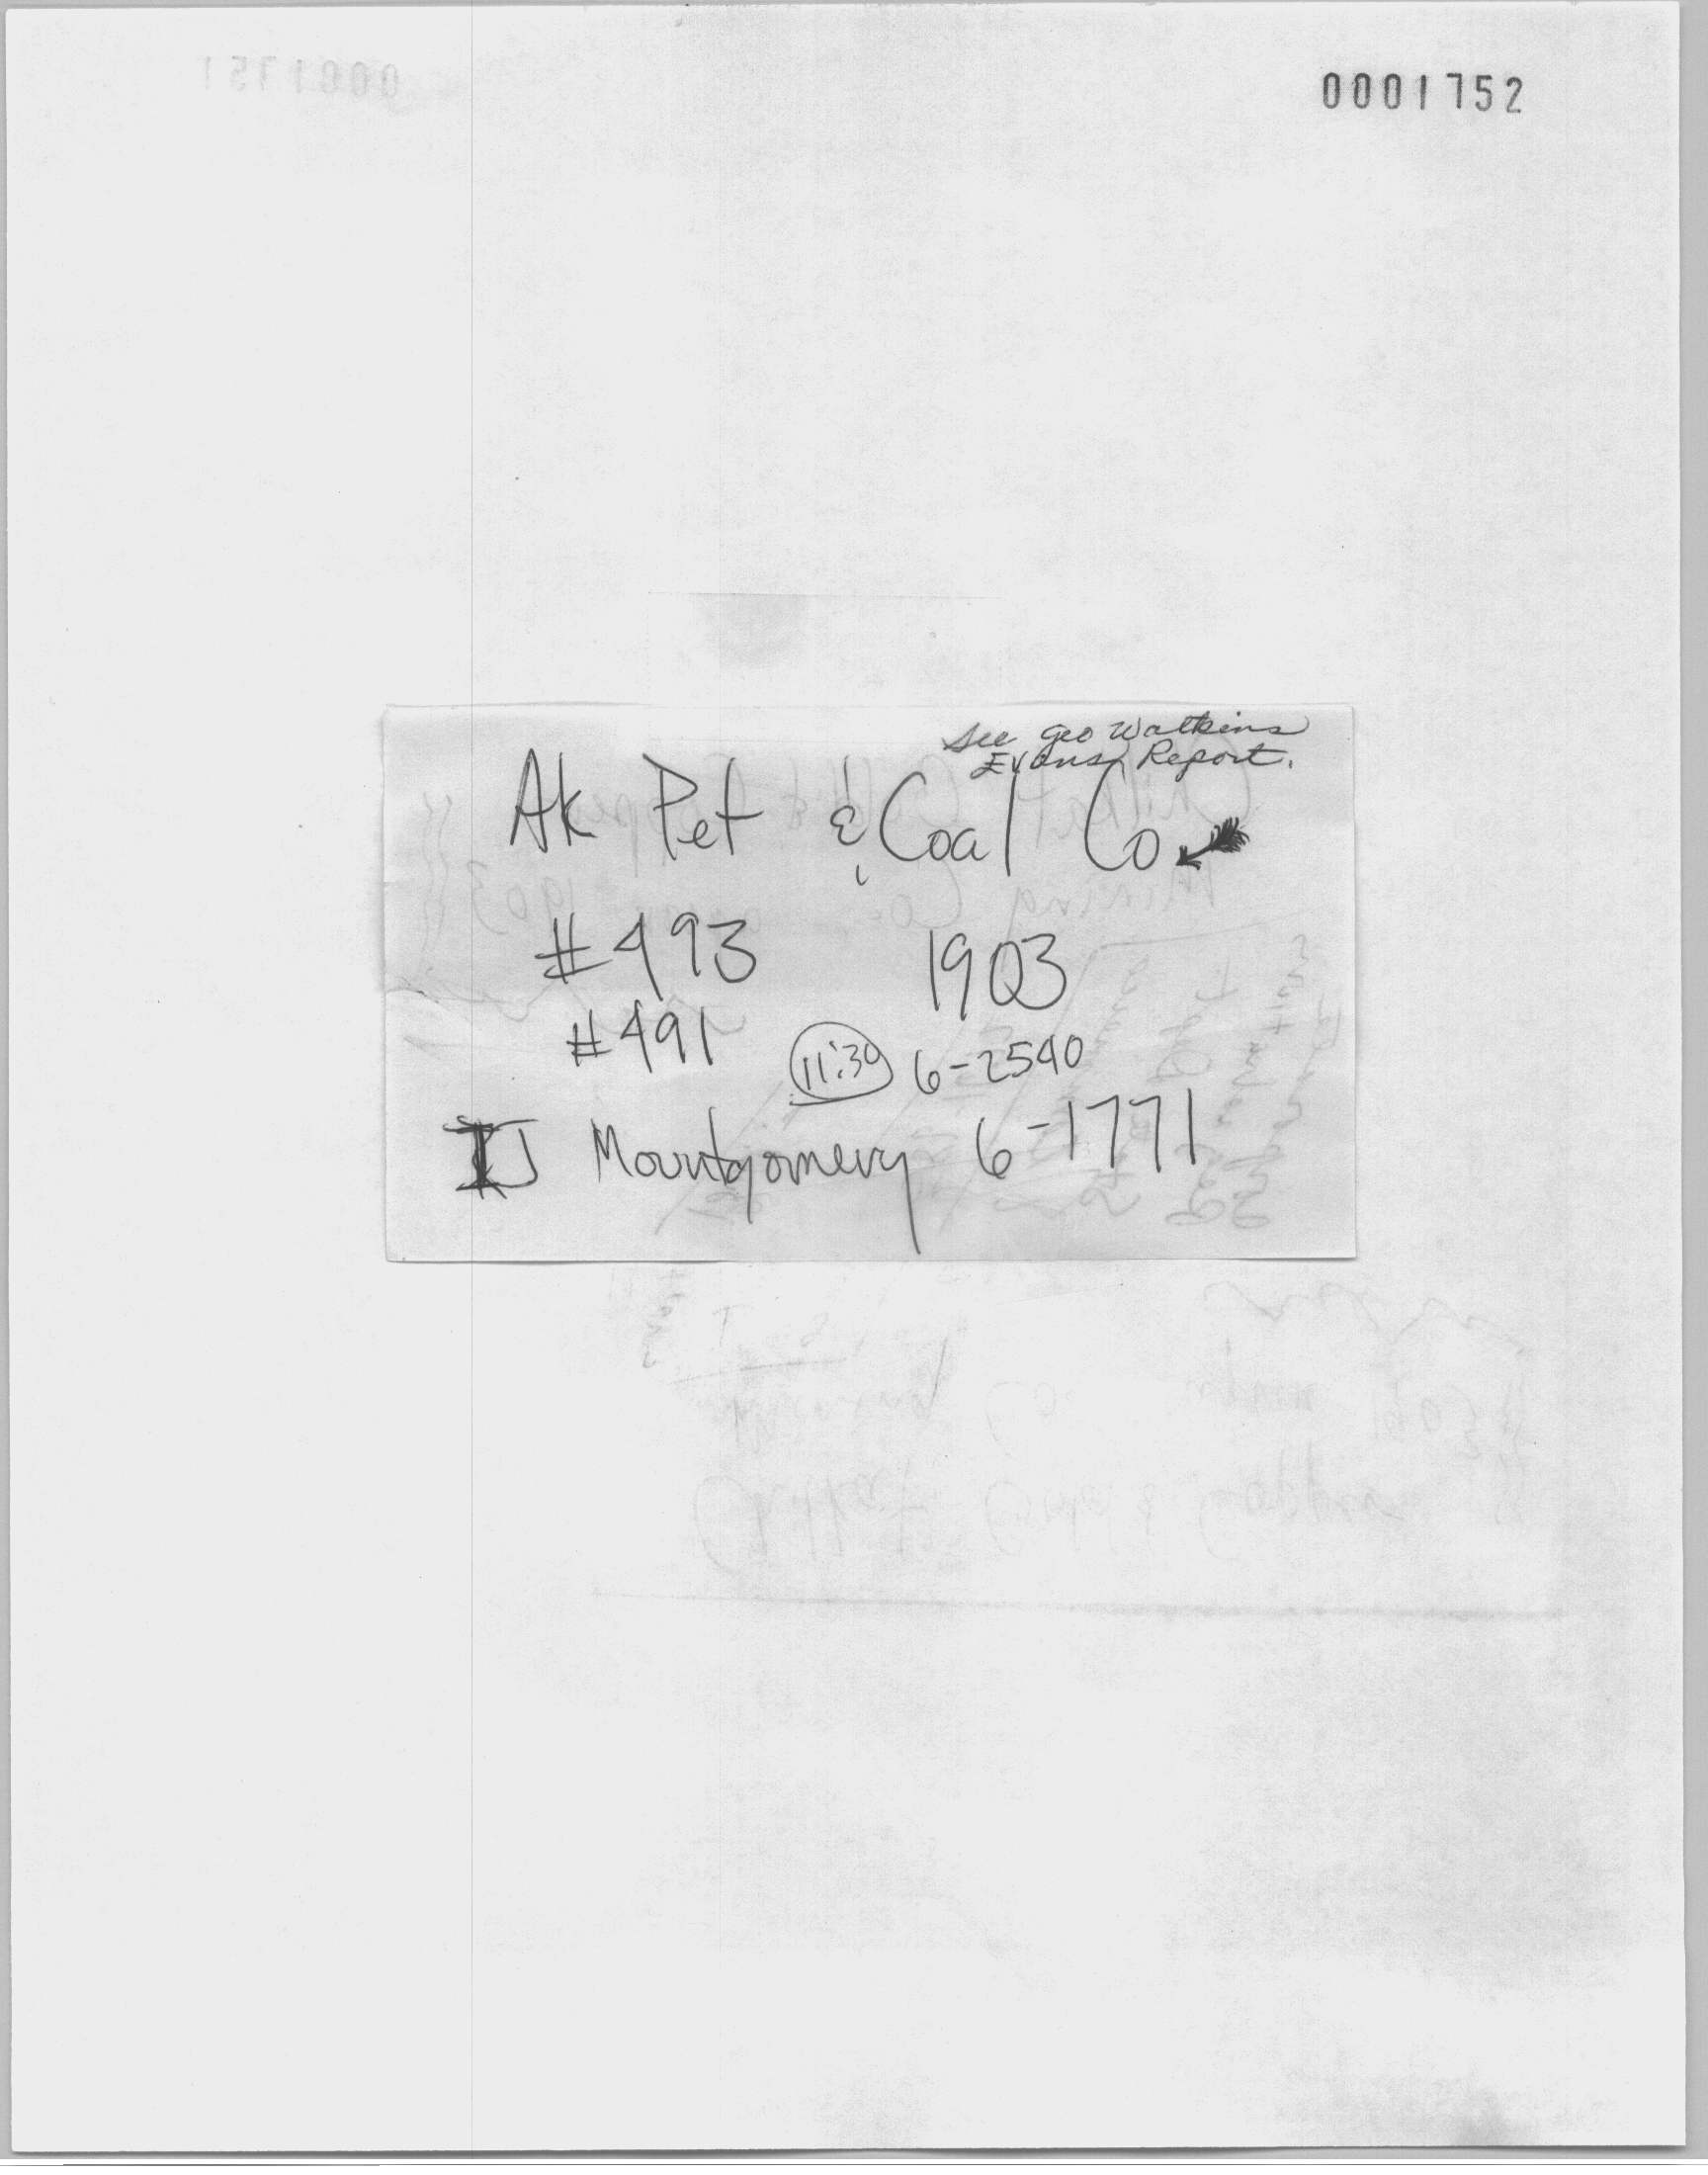 0001752
See Geo Watkins
Evans Report.
Ak Pet & Coal Co
#493 1903
#491 11:30 6-2540
J Mountgomery 6-1771